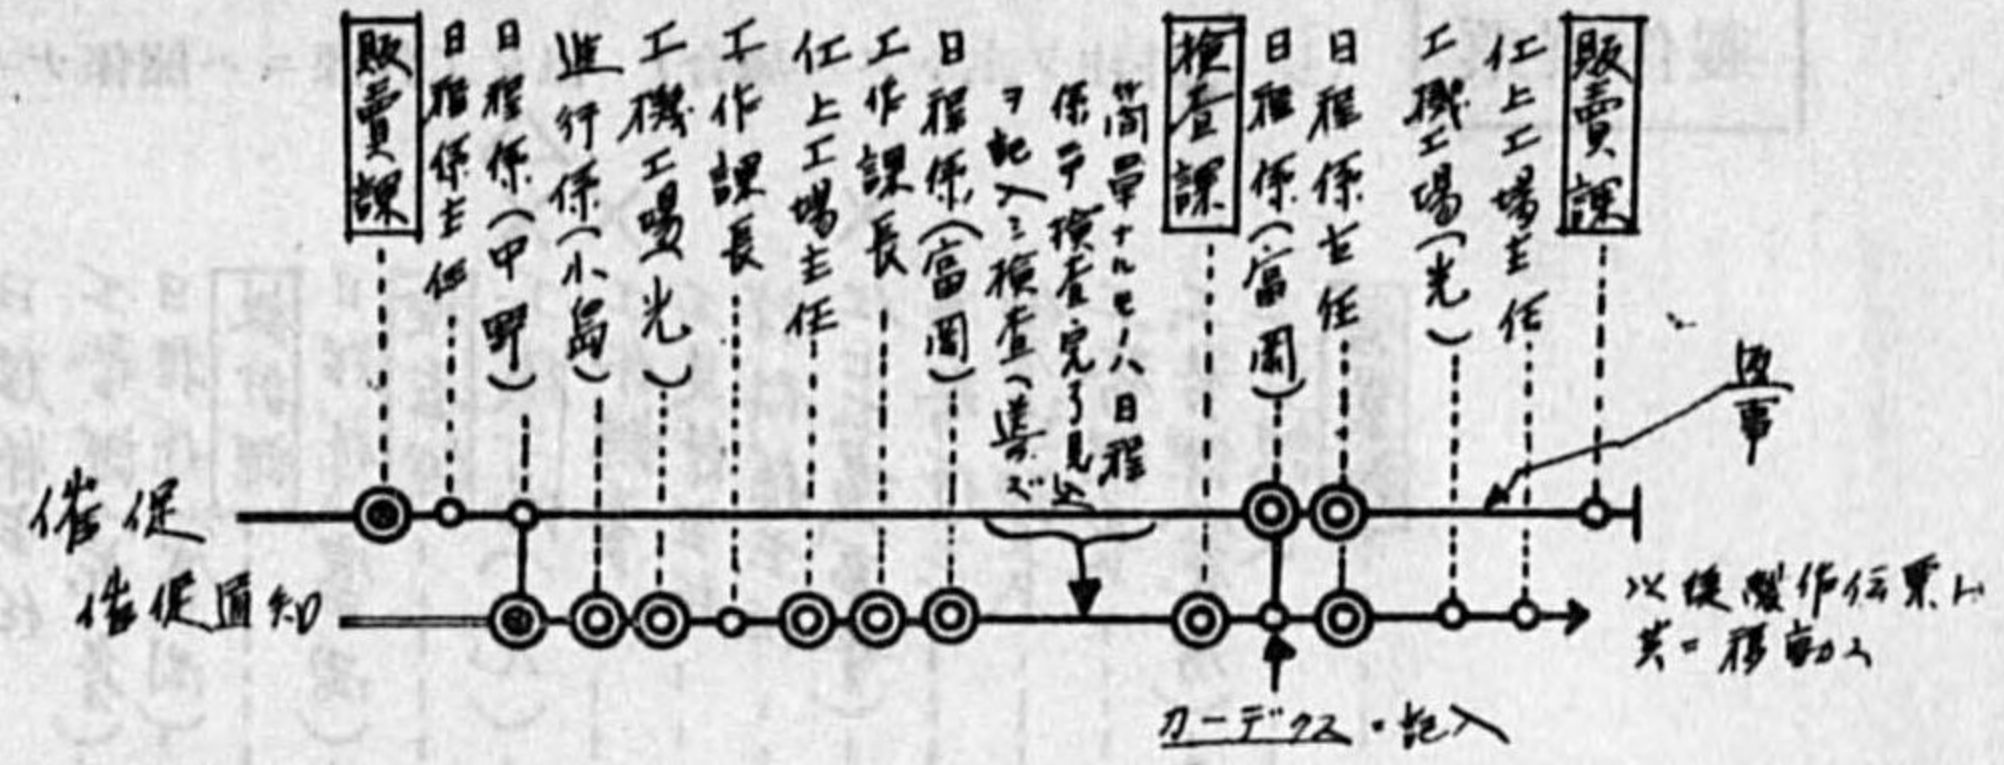 販賣課
日程係主任
日程係(中野)
進行係(小島)
工機工場(光)
工作課長
仕上工場主任
工作課長
日程係(富岡)
簡單ナルモノハ日程
係ニテ検査完了見込
ヲ記入シ検査
検査課
日程係(富岡)
日程係主任
工機工場(光)
仕上工場主任
販賣課
返事
催促
催促通知
以後製作伝票ト
共ニ移動ス
カーデクスニ記入